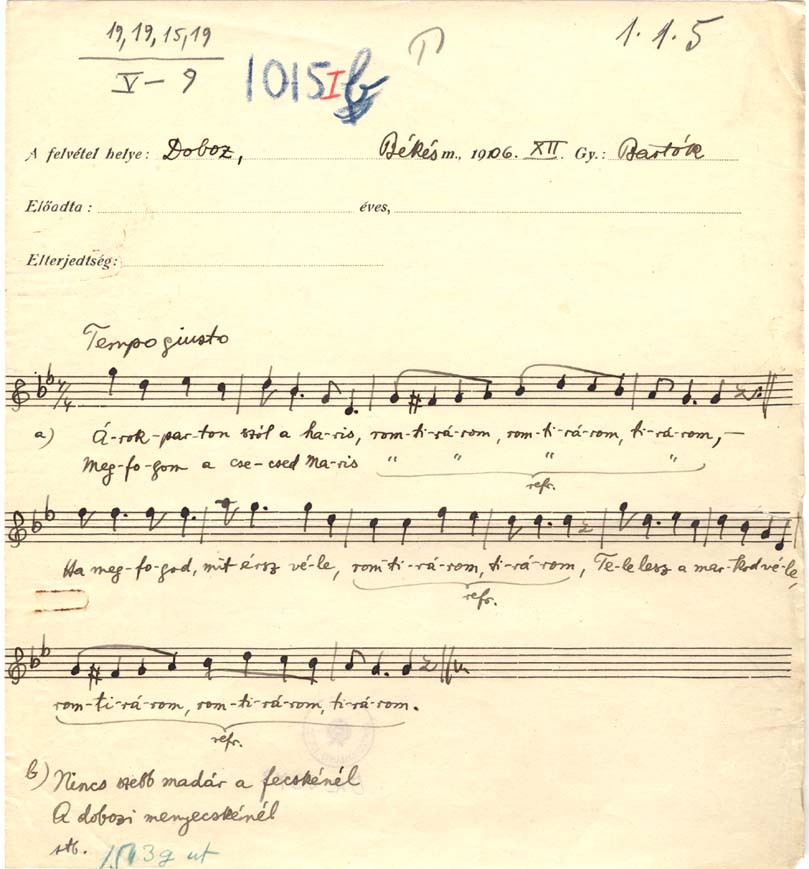 19, 19, 15, 19
V – 9
1015 I b
1. 1. 5
A felvétel helye: Doboz, Békés m., 1906. XII. Gy.: Bartók
Előadta: éves,
Elterjedtség:
Tempo giusto
a) Á-rok-par-ton szól a ha-ris, rom-ti-rá-rom, rom-ti-rá-rom, ti-rá-rom,–
Meg-fo-gom a cse-csed Ma-ris " " " "
refr.
Ha meg-fo-god, mit érsz vé-le, rom-ti-rá-rom, ti-rá-rom, Te-le lesz a mar-kod vé-le,
refr.
rom-ti-rá-rom, rom-ti-rá-rom, ti-rá-rom.
refr.
b) Nincs szebb madár a fecskénél
A dobozi menyecskénél
stb.